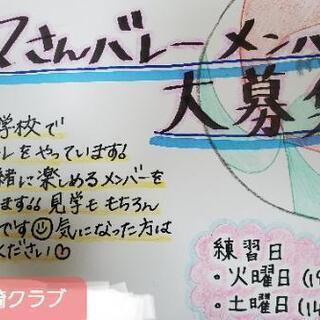 マさんバレーメンバ
大募集
学校で
レをやっています!
緒に楽しめるメンバーを
ます!! 見学ももちろん
です☺気になった方は
ください♡
練習日
・火曜日(19
・土曜日(14
クラブ